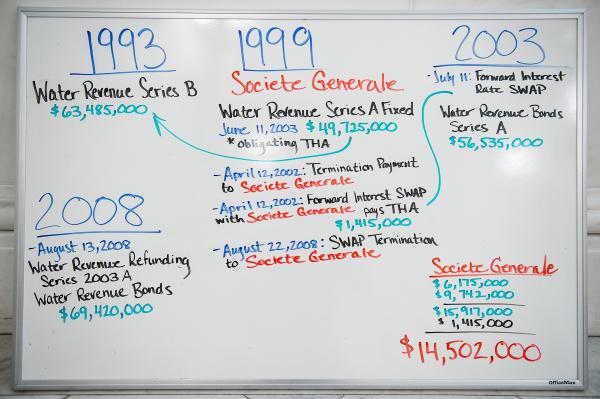 1993
Water Revenue Series B
$63,485,000
1999
Societe Generale
Water Revenue Series A Fixed
June 11, 2003 $49,725,000
* obligating THA
- April 12, 2002: Termination Payment
to Societe Generale
- April 12, 2002: Forward Interest SWAP
with Societe Generale pays THA
$1,415,000
- August 22, 2008: SWAP Termination
to Societe Generale
2003
- July 11: Forward Interest
Rate SWAP
Water Revenue Bonds
Series A
$56,535,000
2008
- August 13, 2008
Water Revenue Refunding
Series 2003 A
Water Revenue Bonds
$69,420,000
Societe Generale
$6,175,000
$9,742,000
$15,917,000
$1,415,000
$14,502,000
OfficeMax